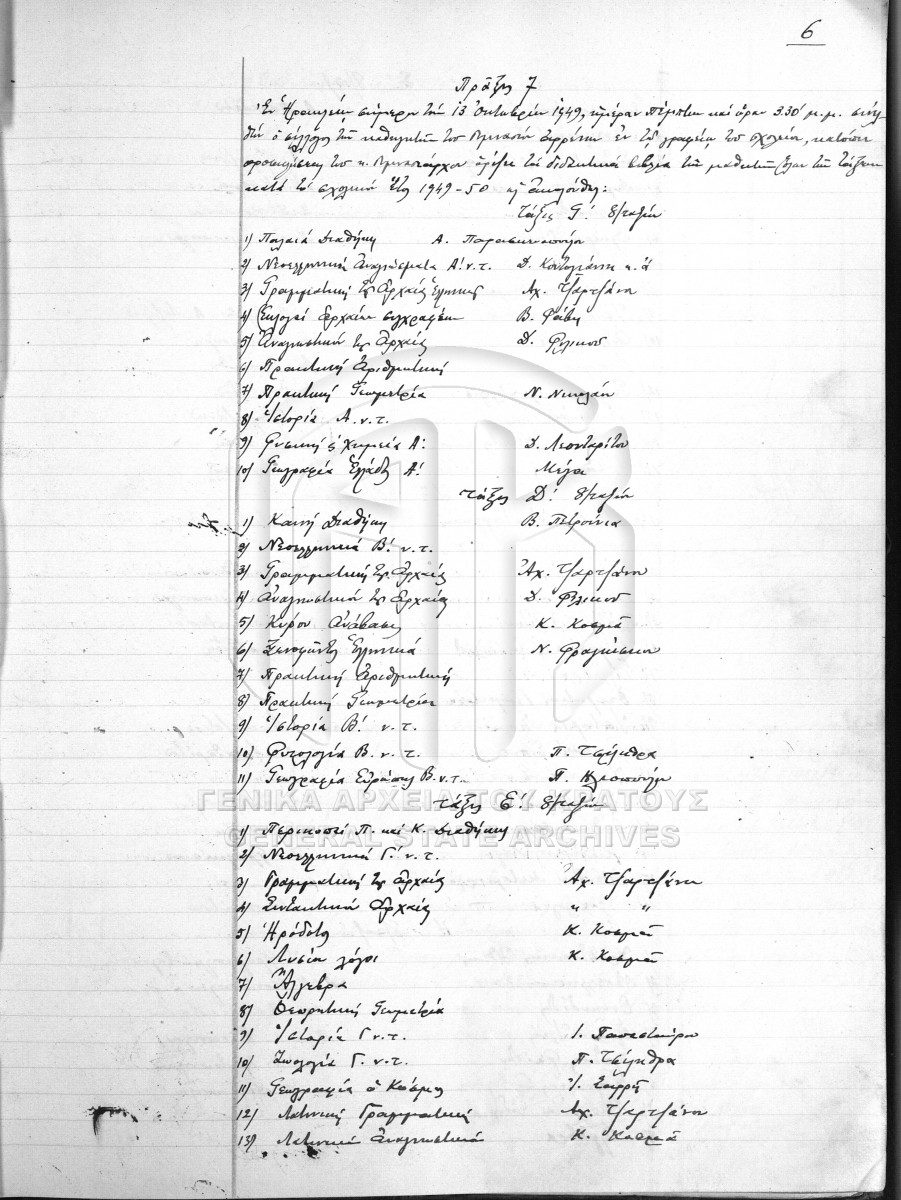 6
Πρᾶξις 7
Ἐν Ἡρακλείῳ σήμερον τὴν 13 Ὀκτωβρίου 1949, ἡμέραν Πέμπτην καὶ ὥραν 3.30' μ.μ. συνῆλ
θεν ὁ σύλλογος τῶν καθηγητῶν τοῦ Γυμνασίου Ἀρρένων ἐν τῷ γραφείῳ τοῦ σχολείου, κατόπιν
προσκλήσεως τοῦ κ. Γυμνασιάρχου τὰ διδακτικὰ βιβλία τῶν μαθητῶν ὅλων τῶν τάξεων
κατὰ τὸ σχολικὸν ἔτος 1949-50 ὡς ἀκολούθως:
Τάξις Γ! 8/ταξίου
1) Παλαιά Διαθήκη Α. Παρασκευοπούλου
2) Νεοελληνικὰ Ἀναγνώσματα Α! ν.τ. Δ. Κοντογιάννη κ.ἄ
3) Γραμματικὴ τῆς Ἀρχαίας Ἑλληνικῆς Αχ. Τζαρτζάνου
4) Ἐκλογαὶ Ἀρχαίων συγγραφέων Β. Φάβη
5) Ἀναγνωστικὸν τῆς Ἀρχαίας Δ.
6) Πρακτικὴ Ἀριθμητικὴ
7) Πρακτικὴ Γεωμετρία Ν. Νικολάου
8) Ἱστορία Α. ν.τ.
9) Φυσικὴ & Χημεία Α! Δ. Λεονταρίτου
10) Γεωγραφία Ἑλλάδος Α! Μέγα
τάξις Δ! 8/ταξίου
1) Καινὴ Διαθήκη Β. Πετρούνια
2) Νεοελληνικὰ Β! ν.τ.
3) Γραμματικὴ τῆς Ἀρχαίας Ἀχ. Τζαρτζάνου
4) Ἀναγνωστικὸν τῆς Ἀρχαίας Δ.
5) Κύρου Ἀνάβασις Κ. Κοσμᾶ
6) Ξενοφῶντος Ἑλληνικά Ν. Φραγκίσκου
7) Πρακτικὴ Ἀριθμητικὴ
8) Πρακτικὴ Γεωμετρία
9) Ἱστορία Β! ν.τ.
10) Φυτολογία Β. ν.τ. Π. Τσίληθρα
11) Γεωγραφία Εὐρώπης Β. ν.τ. Π. Ηλιοπούλου
ΓΕΝΙΚΑ ΑΡΧΕΙΑ ΤΟΥ ΚΡΑΤΟΥΣ
GENERAL STATE ARCHIVES
τάξις Ε! 8/ταξίου
1) Περικοπαὶ Π. καὶ Κ. Διαθήκης
2) Νεοελληνικὰ Γ! ν.τ.
3) Γραμματικὴ τῆς Ἀρχαίας Ἀχ. Τζαρτζάνου
4) Συντακτικὸν Ἀρχαίας " "
5) Ἡρόδοτος Κ. Κοσμᾶ
6) Λυσίου λόγοι Κ. Κοσμᾶ
7) Ἄλγεβρα
8) Θεωρητικὴ Γεωμετρία
9) Ἱστορία Γ ν.τ. Ι. Παπασταύρου
10) Ζωολογία Γ. ν.τ. Π. Τσίληθρα
11) Γεωγραφία ὁ Κόσμος Ἰ. Σαρρῆ
12) Λατινικὴ Γραμματικὴ Αχ. Τζαρτζάνου
13) Λατινικὸν Ἀναγνωστικόν Κ. Κοσμᾶ